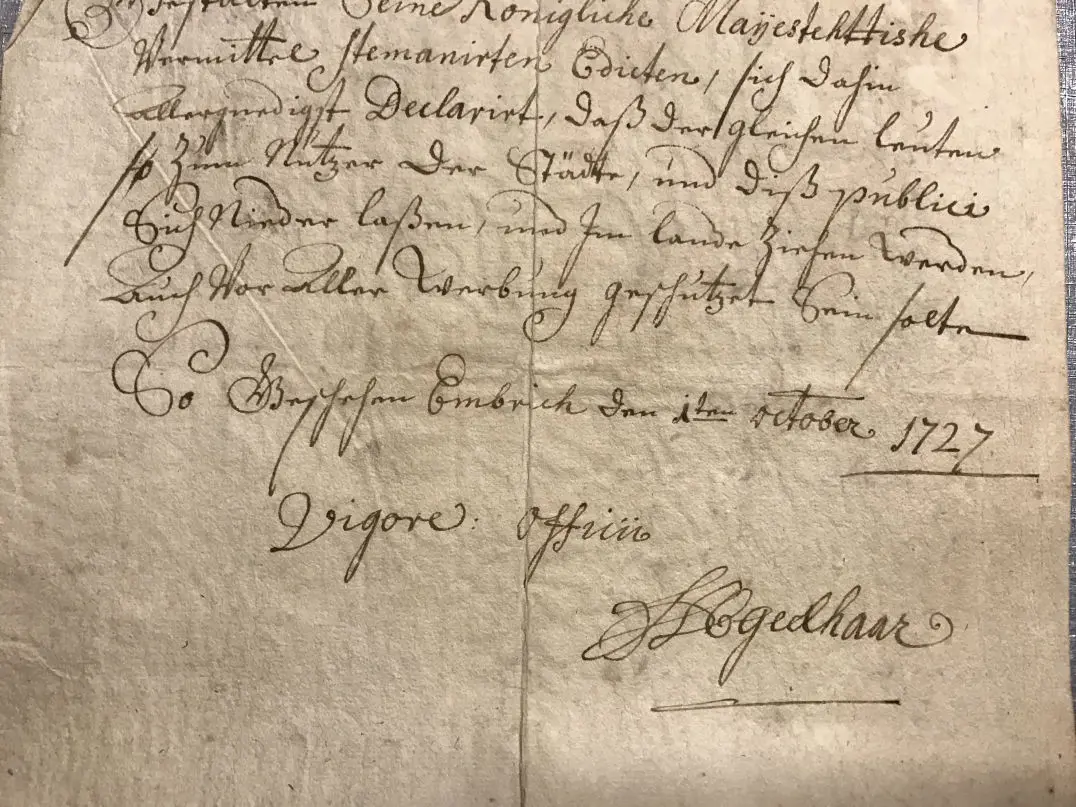 Gestalten Seine Königliche Maÿestehttishe
Vermittle Edicten, sich dahin
allergnedigst Declarirt, daß der gleichen leuten
so zum Nutzen der Städte, und diß publici
Sich Nieder laßen, und Im lande ziehen werden,
Auch Vor Aller Werbung geschützet Sein solte
So Geschehen Embrich den 1ten october 1727
Vigore: Officii